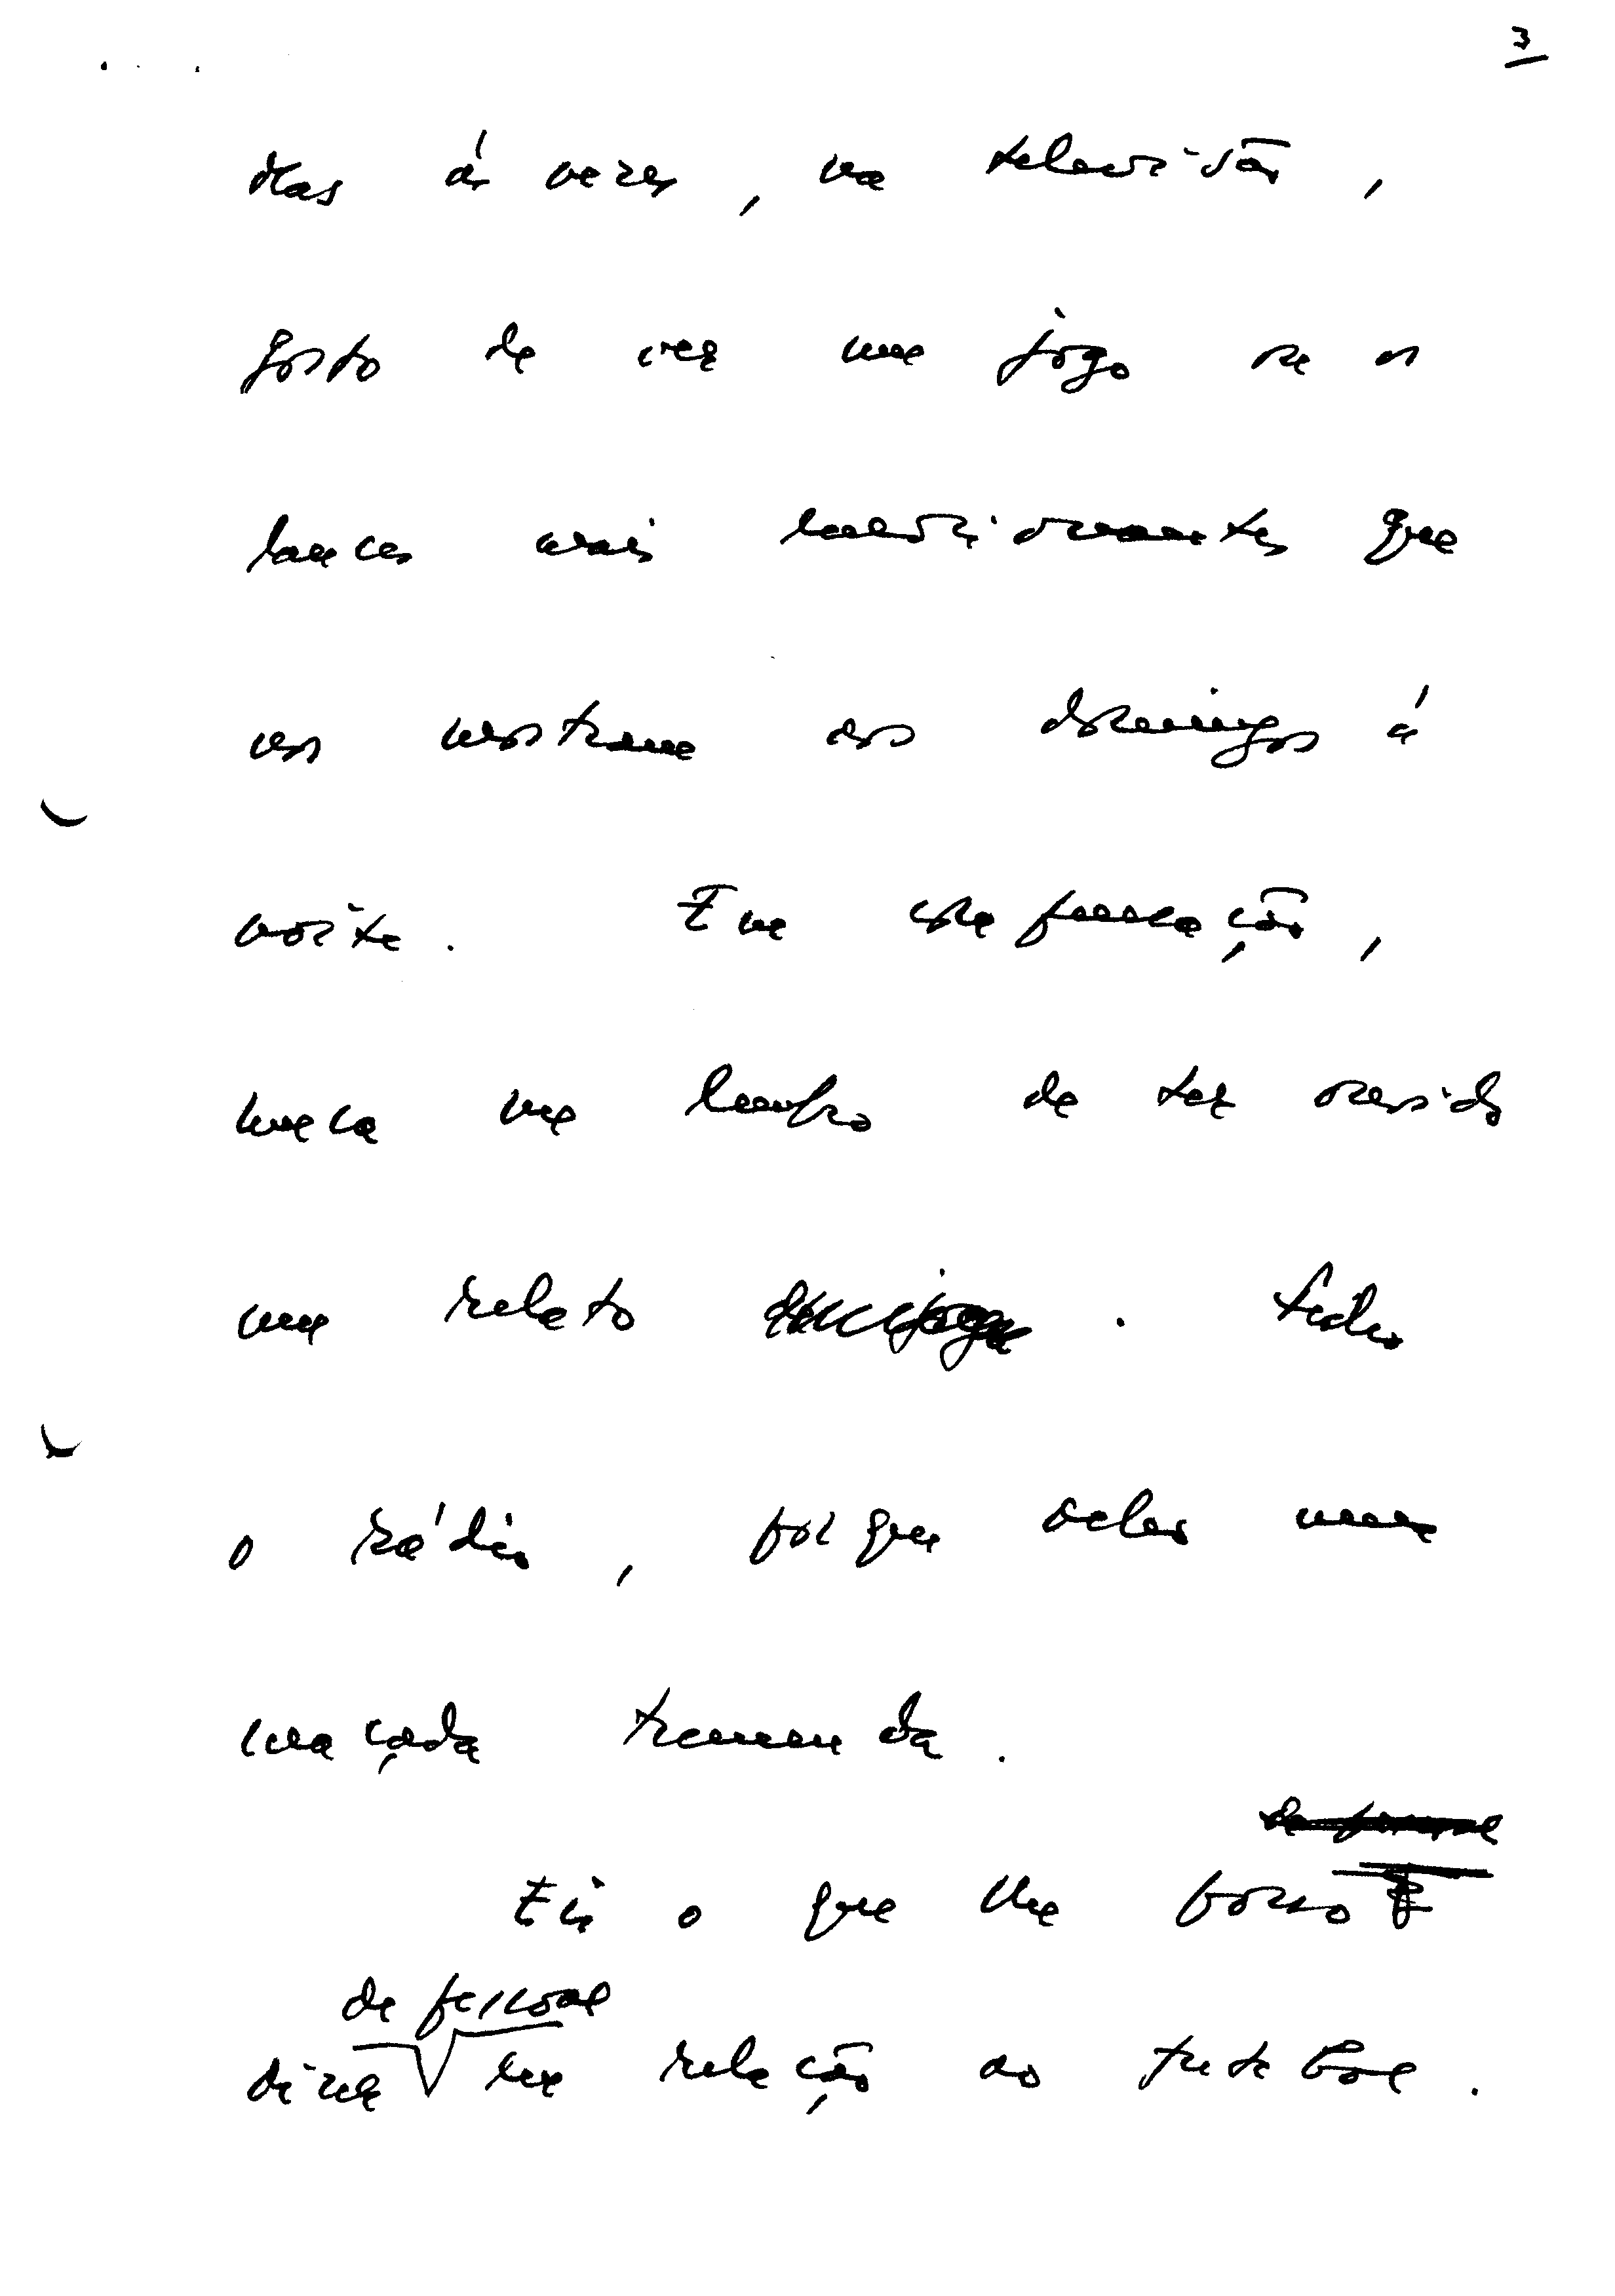 3
Mas ás vezes, na televisão,
gosto de ver um jogo ou os
lances mais emocionantes que
nos mostram aos domingos á
noite. Em compensação,
nunca me lembro de ter ouvido
um relato. Fecho
o rádio, porque acho uma
maçada tremenda.
Eis o que lhe posso
de pessoal
dizer em relação ao futebol.